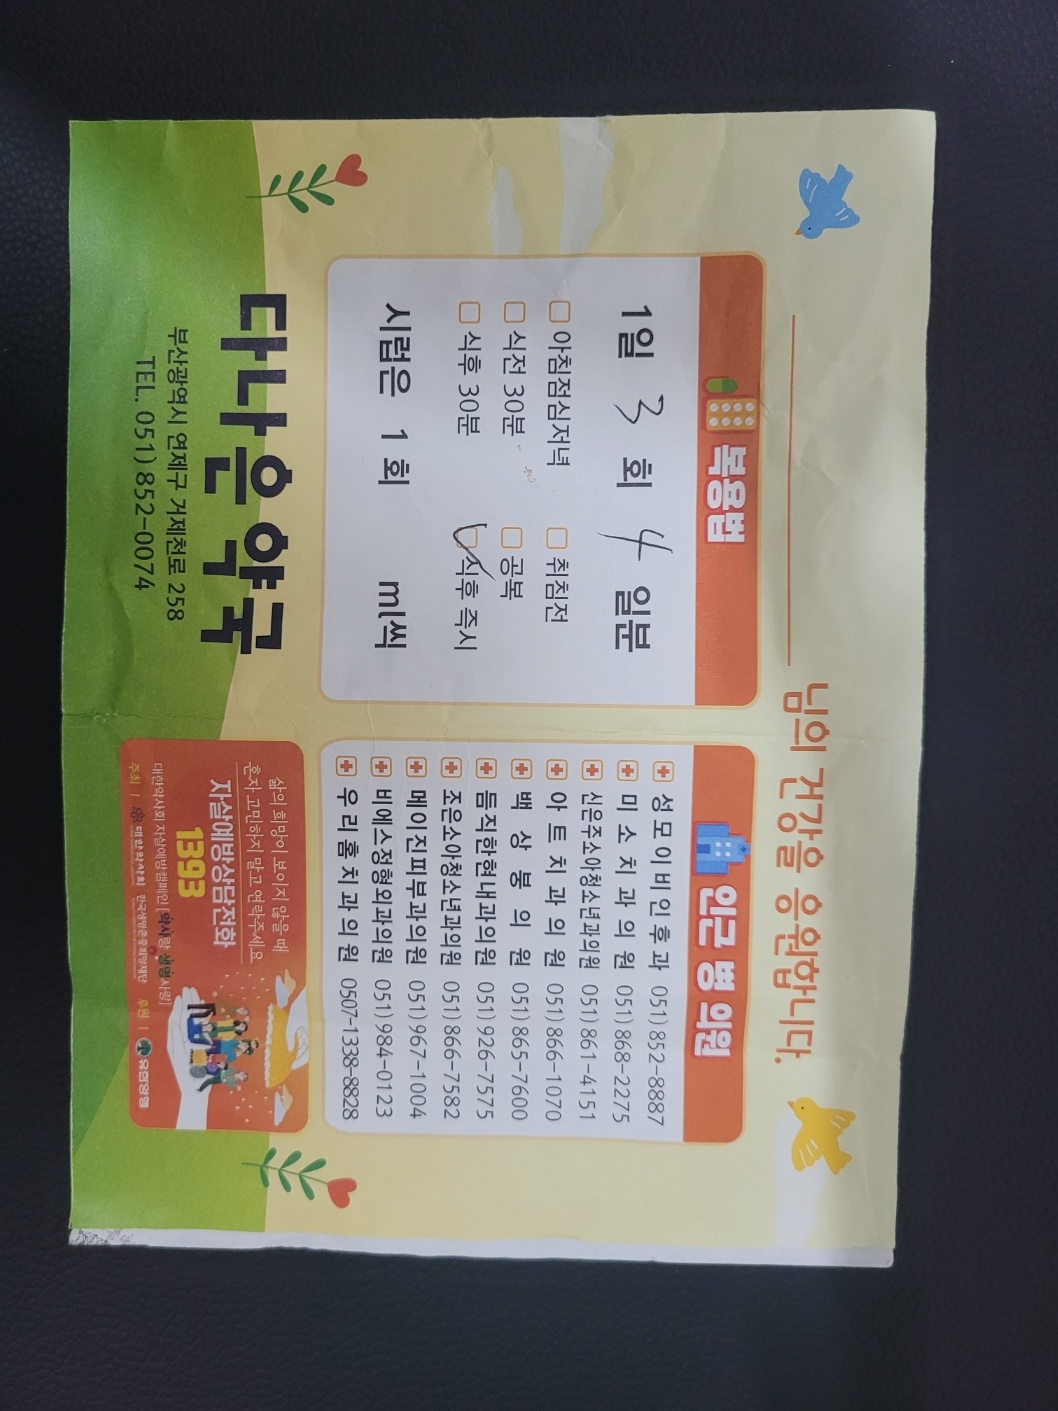 님의 건강을 응원합니다.
복용법
1일 3 회 4 일분
아침점심저녁 취침전
식전 30분 공복
식후 30분 식후 즉시
시럽은 1 회 ml씩
인근 병 의원
성모이비인후과 051)852-8887
미소치과의원 051)868-2275
신은주소아청소년과의원 051)861-4151
아트치과의원 051)866-1070
백상붕의원 051)865-7600
듬직한현내과의원 051)926-7575
조은소아청소년과의원 051)866-7582
메이진피부과의원 051)967-1004
비에스정형외과의원 051)984-0123
우리홈치과의원 0507-1338-8828
다나은약국
부산광역시 연제구 거제천로 258
TEL. 051)852-0074
삶의 희망이 보이지 않을 때
혼자 고민하지 말고 연락주세요
자살예방상담전화
1393
대한약사회 자살예방캠페인 | 약사랑 생명사랑|
주최 | 대한약사회 한국생명존중희망재단 후원 | 유한양행